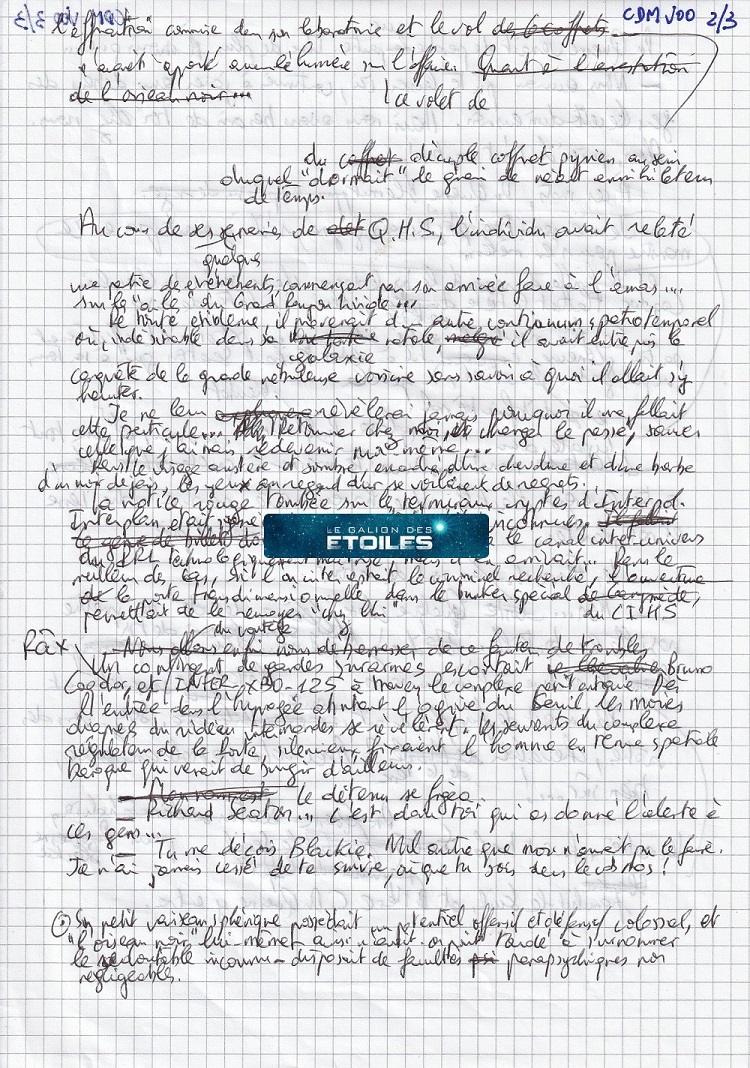 CDM V00 2/3
l'effraction commise dans son laboratoire et le vol des 6 coffrets
n'avait apporté aucune lumière sur l'affaire. Quant à l'arrestation
de l'oiseau noir... ce volet de
du coffret décuple coffret pyrien au sein
duquel "dormait" le grain de néant annihilateur
de Temps.
Au cours de ses de Q.H.S, l'individu avait relaté
quelque
une partie des événements, commençant par son arrivée face à l'amas...
sur le du Grand
De toute évidence, il provenait d'un autre continuum spatiotemporel
où, indésirable dans sa natale, malgré il avait entrepris la
galaxie
conquête de la grande nébuleuse voisine sans savoir à quoi il allait s'y
heurter.
Je ne leur révèlerai jamais pourquoi il me fallait
cette particule... Retourner chez moi, et changer le passé, sauver
celle que j'aimais, redevenir moi-même...
Dans le visage austère et sombre, encadré d'une chevelure et d'une barbe
d'un noir de jais, les yeux au regard dur se voilaient de regrets.
La notice rouge tombée sur les terminaux cryptés d'Interpol.
Interplan était
LE GALION DES
ETOILES
le canal inter-univers
du technologiquement mais Dans le
meilleur des cas, si l'on interceptait le criminel recherché, l'ouverture
de la porte transdimensionnelle, dans le bunker spécial
permettait de le renvoyer "chez lui" du CIHS
Râx
Nous allons enfin nous débarrasser de ce fauteur de troubles
Un contingent de gardes surarmés escortait le Bruno
Cogdor, et l'INTER-XBO-125 à travers le complexe Dès
l'entrée dans l'hypogée abritant l'ogive du Seuil, les moires
diaprés du rideau intermondes se révélèrent. Les servants du complexe
régulateur de la Porte, silencieux, fixaient l'homme en tenue spatiale
baroque qui venait de surgir d'ailleurs.
Le détenu se figea
— Richard Seaton... c'est donc toi qui as donné l'alerte à
ces gens...
— Tu me déçois Blackie. Nul autre que moi n'aurait pu le faire.
Je n'ai jamais cessé de te suivre, où que tu sois dans le cosmos !
Son petit vaisseau sphérique possédait un potentiel offensif et défensif colossal, et
"l'oiseau noir" lui-même - ainsi avait-on pris à surnommer
le redoutable inconnu - disposait de facultés psi parapsychiques non
négligeables.